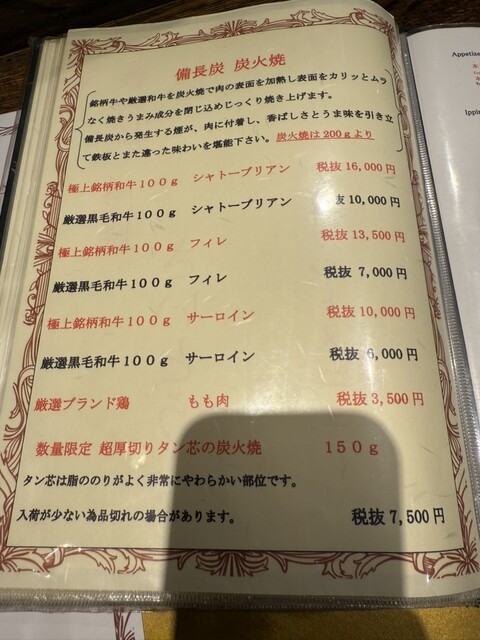 備長炭 炭火焼
銘柄牛や厳選和牛を炭火焼で肉の表面を加熱し表面をカリッとムラ
なく焼きうまみ成分を閉じ込めじっくり焼き上げます。
備長炭から発生する煙が、肉に付着し、香ばしさとうま味を引き立
て鉄板とまた違った味わいを堪能下さい。炭火焼は200gより
極上銘柄和牛100g シャトーブリアン 税抜 16,000円
厳選黒毛和牛100g シャトーブリアン 抜 10,000円
極上銘柄和牛100g フィレ 税抜 13,500円
厳選黒毛和牛100g フィレ 税抜 7,000円
極上銘柄和牛100g サーロイン 税抜 10,000円
厳選黒毛和牛100g サーロイン 税抜 6,000円
厳選ブランド鶏 もも肉 税抜 3,500円
数量限定 超厚切りタン芯の炭火焼 150g
タン芯は脂ののりがよく非常にやわらかい部位です。
入荷が少ない為品切れの場合があります。 税抜 7,500円
Appetise
Ippin